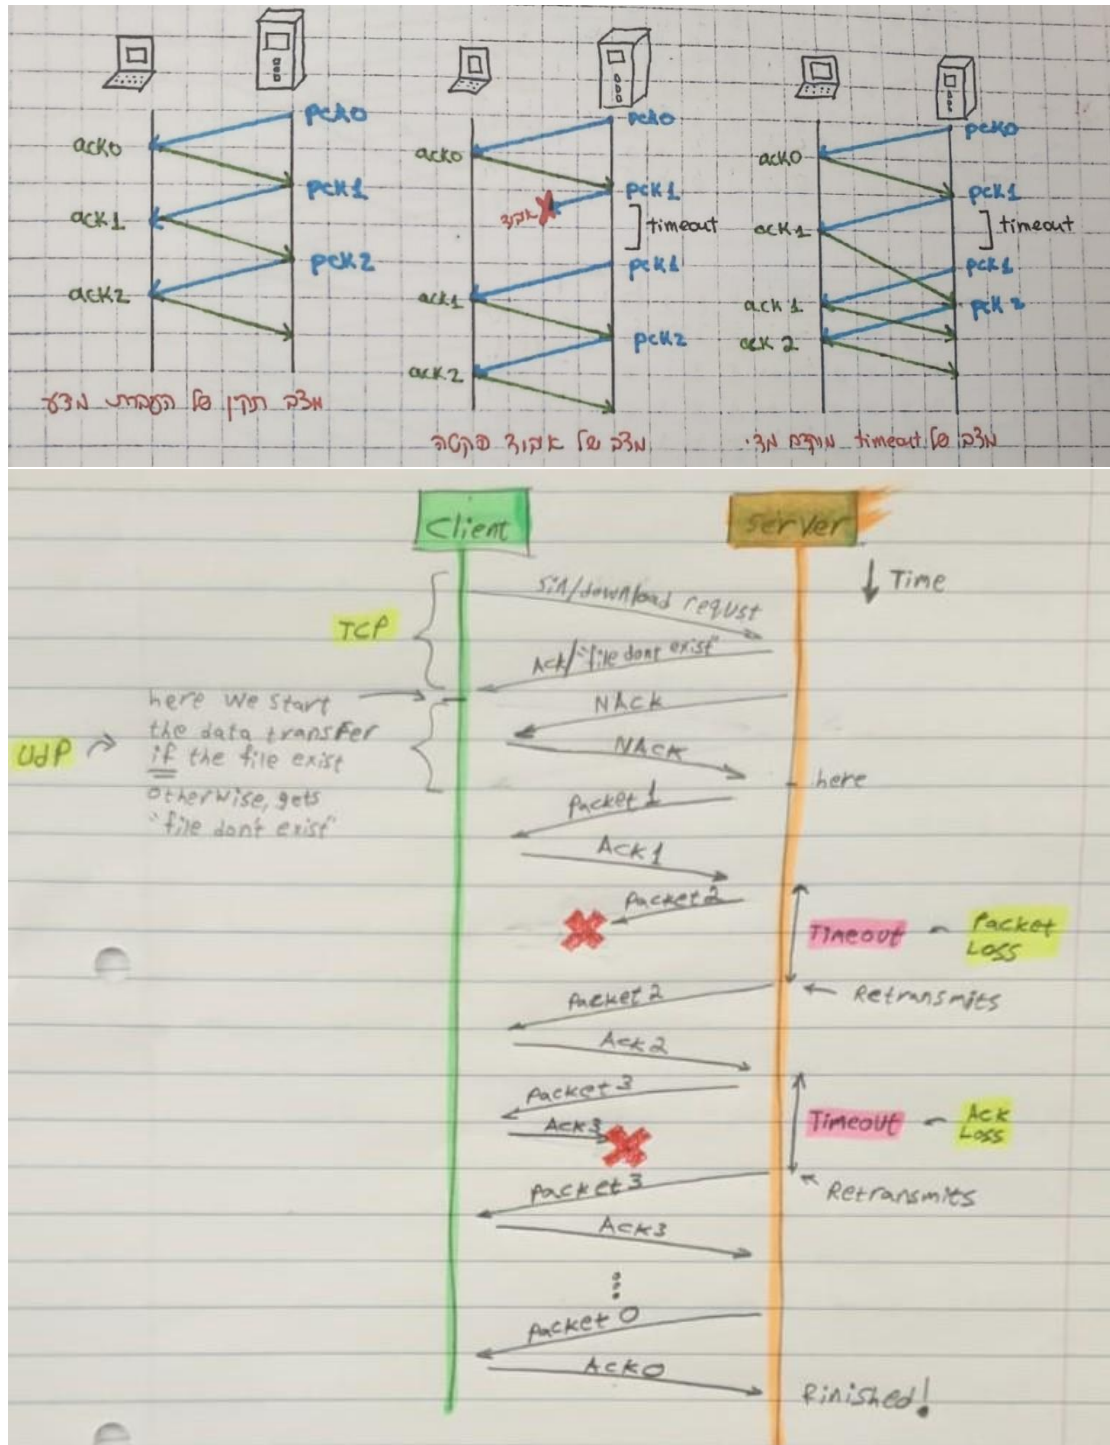 pck0
ack0
pck1
ack1
pck2
ack2
מצב תקין של העברת מידע
pck0
ack0
pck1
אבוד
timeout
pck1
ack1
pck2
ack2
מצב של איבוד פקטה
pck0
ack0
pck1
ack1
timeout
pck1
ack1
pck2
ack2
מצב של timeout מוקדם מדי.
Client
Server
Time
TCP
Sin/download requst
Ack/"file dont exist"
here we start
the data transfer
if the file exist
otherwise, gets
"file don't exist"
UdP
NAck
NAck
here
Packet 1
Ack 1
Packet 2
Timeout - Packet
Loss
Packet 2
Retransmits
Ack 2
Packet 3
Ack 3
Timeout - Ack
Loss
Packet 3
Retransmits
Ack3
Packet 0
Ack0
Finished!